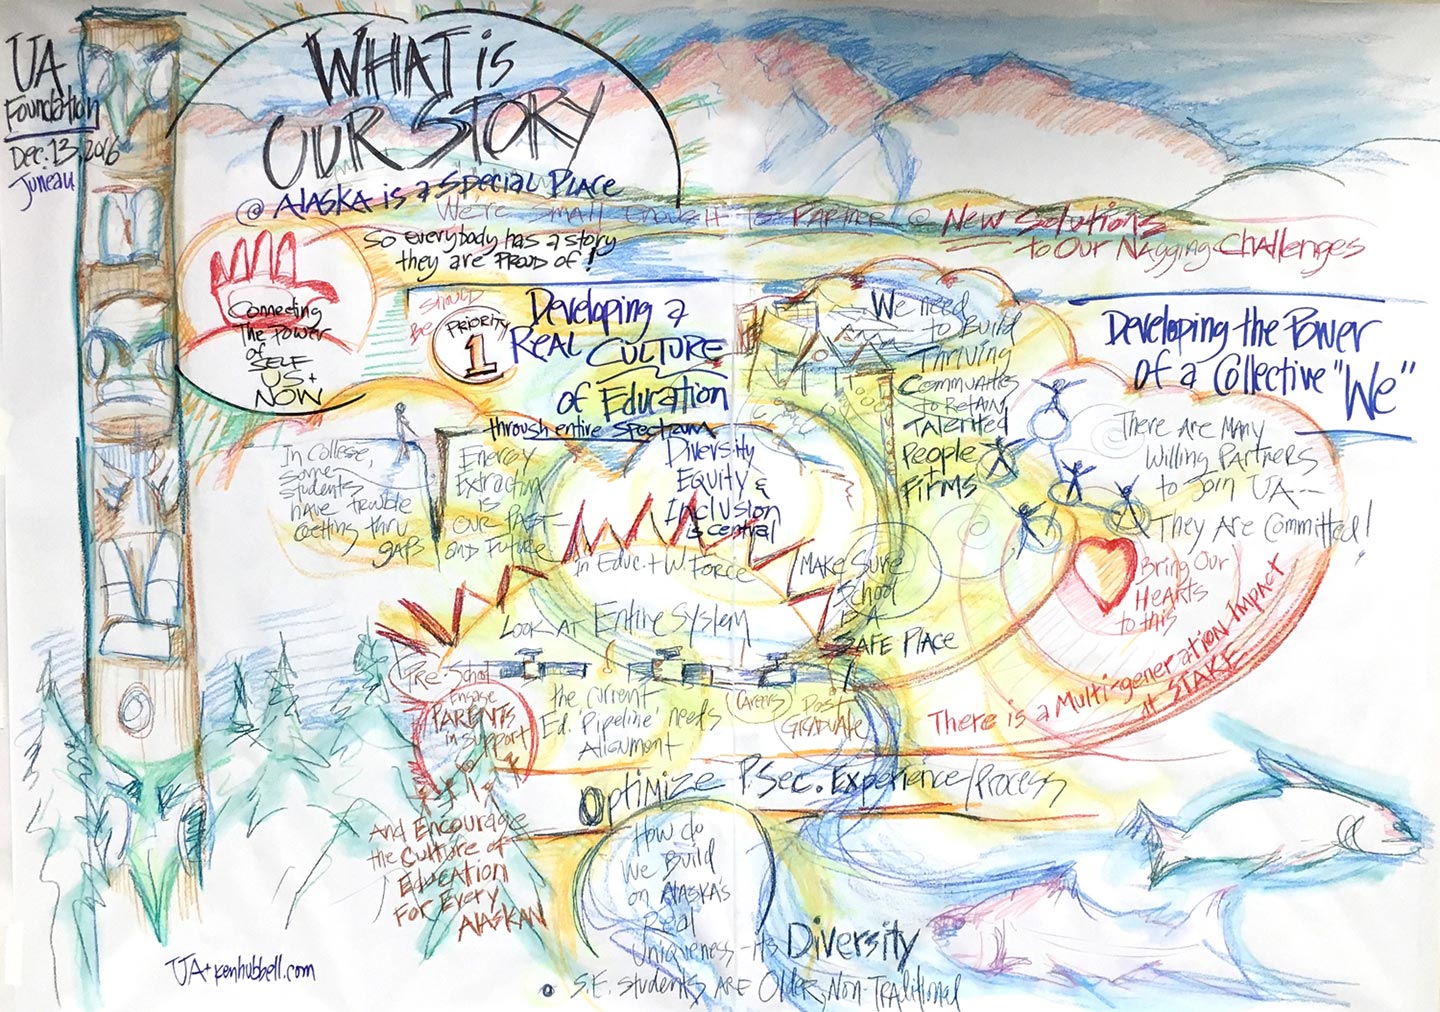 UA
Foundation
Dec. 13, 2016
Juneau
WHAT is
OUR STORY
@ ALASKA is a Special Place
We're small enough to Partner @ New Solutions
to Our Nagging Challenges
So everybody has a story
they are PROUD of!
Connecting
The Power
of
SELF
US +
NOW
Should
Be
PRIORITY
1
Developing a
Real CULTURE
of Education
through entire spectrum
We need
to Build
Thriving
Communities
to Retain
Talented
People
+
Firms
Developing the Power
of a Collective "We"
There Are Many
Willing Partners
to Join UA--
They Are Committed!
Bring Our
Hearts
to this
There is a Multi-generation Impact
at STAKE
In College,
some
students
have trouble
getting thru
gaps
Energy
Extraction
is
our Past
and Future
Diversity
Equity &
Inclusion
is central
in Educ. + W. Force
Make Sure
School
is a
SAFE PLACE
Look at Entire System
Pre-School
Careers
Post
Graduate
the current
Ed. 'Pipeline' needs
Alignment
Engage
PARENTS
in support
And Encourage
the Culture of
Education
For Every
ALASKAN
Optimize P.Sec. Experience/Process
How do
We Build
on Alaska's
Real
Uniqueness - its Diversity
S.E. Students are Older, Non-Traditional
UA+kenhubbell.com